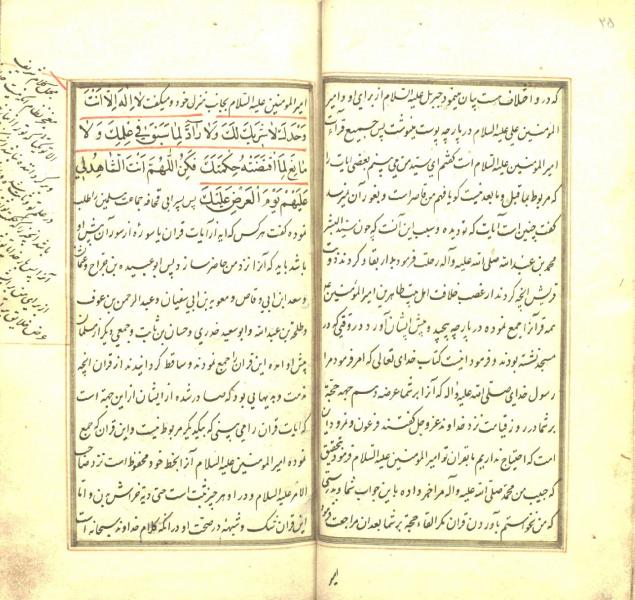 ۲۵
که در و اختلاف هست بیان مینمود جبرئیل علیه السلام از برای او و امیر
المؤمنین علی علیه السلام در پارچه پوست مینوشت پس جمیع قرآت
امیر المؤمنین علیه السلام است گفتم ای سید من می بینم بعضی آیات را
که مربوط بما قبل و ما بعد نیست کویا فهم من قاصر است و بغور آن نمیرسد
گفت چنین است آیات که تو دیده و سبب این آنست که چون سید البشر
محمد بن عبد الله صلی الله علیه و آله رحلت فرمود بدار بقا و کردند دو بت
قریش آنچه کردند از غصب خلافت اهل بیت طاهرین امیر المؤمنین علی
همه قرآنرا جمع نموده در پارچه پیچید و پیش ایشان آورد در وقتی که در
مسجد نشسته بودند و فرمود اینست کتاب خدای تعالی که امر فرمود مرا
رسول خدای صلی الله علیه و آله که آنرا بر شما عرضه دهم جهة حجة
بر شما در روز قیامت نزد خداوند عز و جل گفتند فرعون و نمرود این
امت که احتیاج نداریم ما بقرآن تو امیر المؤمنین علیه السلام فرمود بتحقیق
که حبیب من محمد صلی الله علیه و آله مرا خبر داده باین جواب شما و بدرستی
که من نخواستم بآوردن قرآن مگر القاء حجة بر شما بعد از آن مراجعت فرمود
امیر
امیر المؤمنین علیه السلام بجانب منزل خود و میگفت لا اله الا انت
وحدک لا شریک لک ولا رآد لما سبق فی علمک و لا
مانع لما اقتضته حکمتک فکن اللهم انت الشاهد لی
علیهم یوم العرض علیک پس پسر ابی قحافه جماعت مسلمین را طلب
نموده گفت هر کس که آیه از آیات قرآن یا سوره از سور آن پیش او
باشد باید که آنرا نزد من حاضر سازد پس ابو عبیده بن جراح و عثمان
و سعد ابن ابی وقاص و معویه بن ابی سفیان و عبد الرحمن بن عوف
و طلحه بن عبد الله و ابو سعید خدری و حسان بن ثابت و جمعی دیگر از مسلمان
پیش او آمده این قرآن را جمع نمودند و ساقط کردانیدند از قرآن آنچه
مذمت و بدیهایی بود که صادر شده از ایشان از این جهة است
که آیات قرآن را می بینی که بیکدیگر مربوط نیست و این قرآن که جمع
نموده امیر المؤمنین علیه السلام آنرا بخط خود محفوظ است نزد صاحب
الامر علیه السلام و در او هر چیز ثبت است حتی دیة خراشیدن و اما
این قرآن شک و شبهه در صحت او در آنکه کلام خداوند سبحانه است